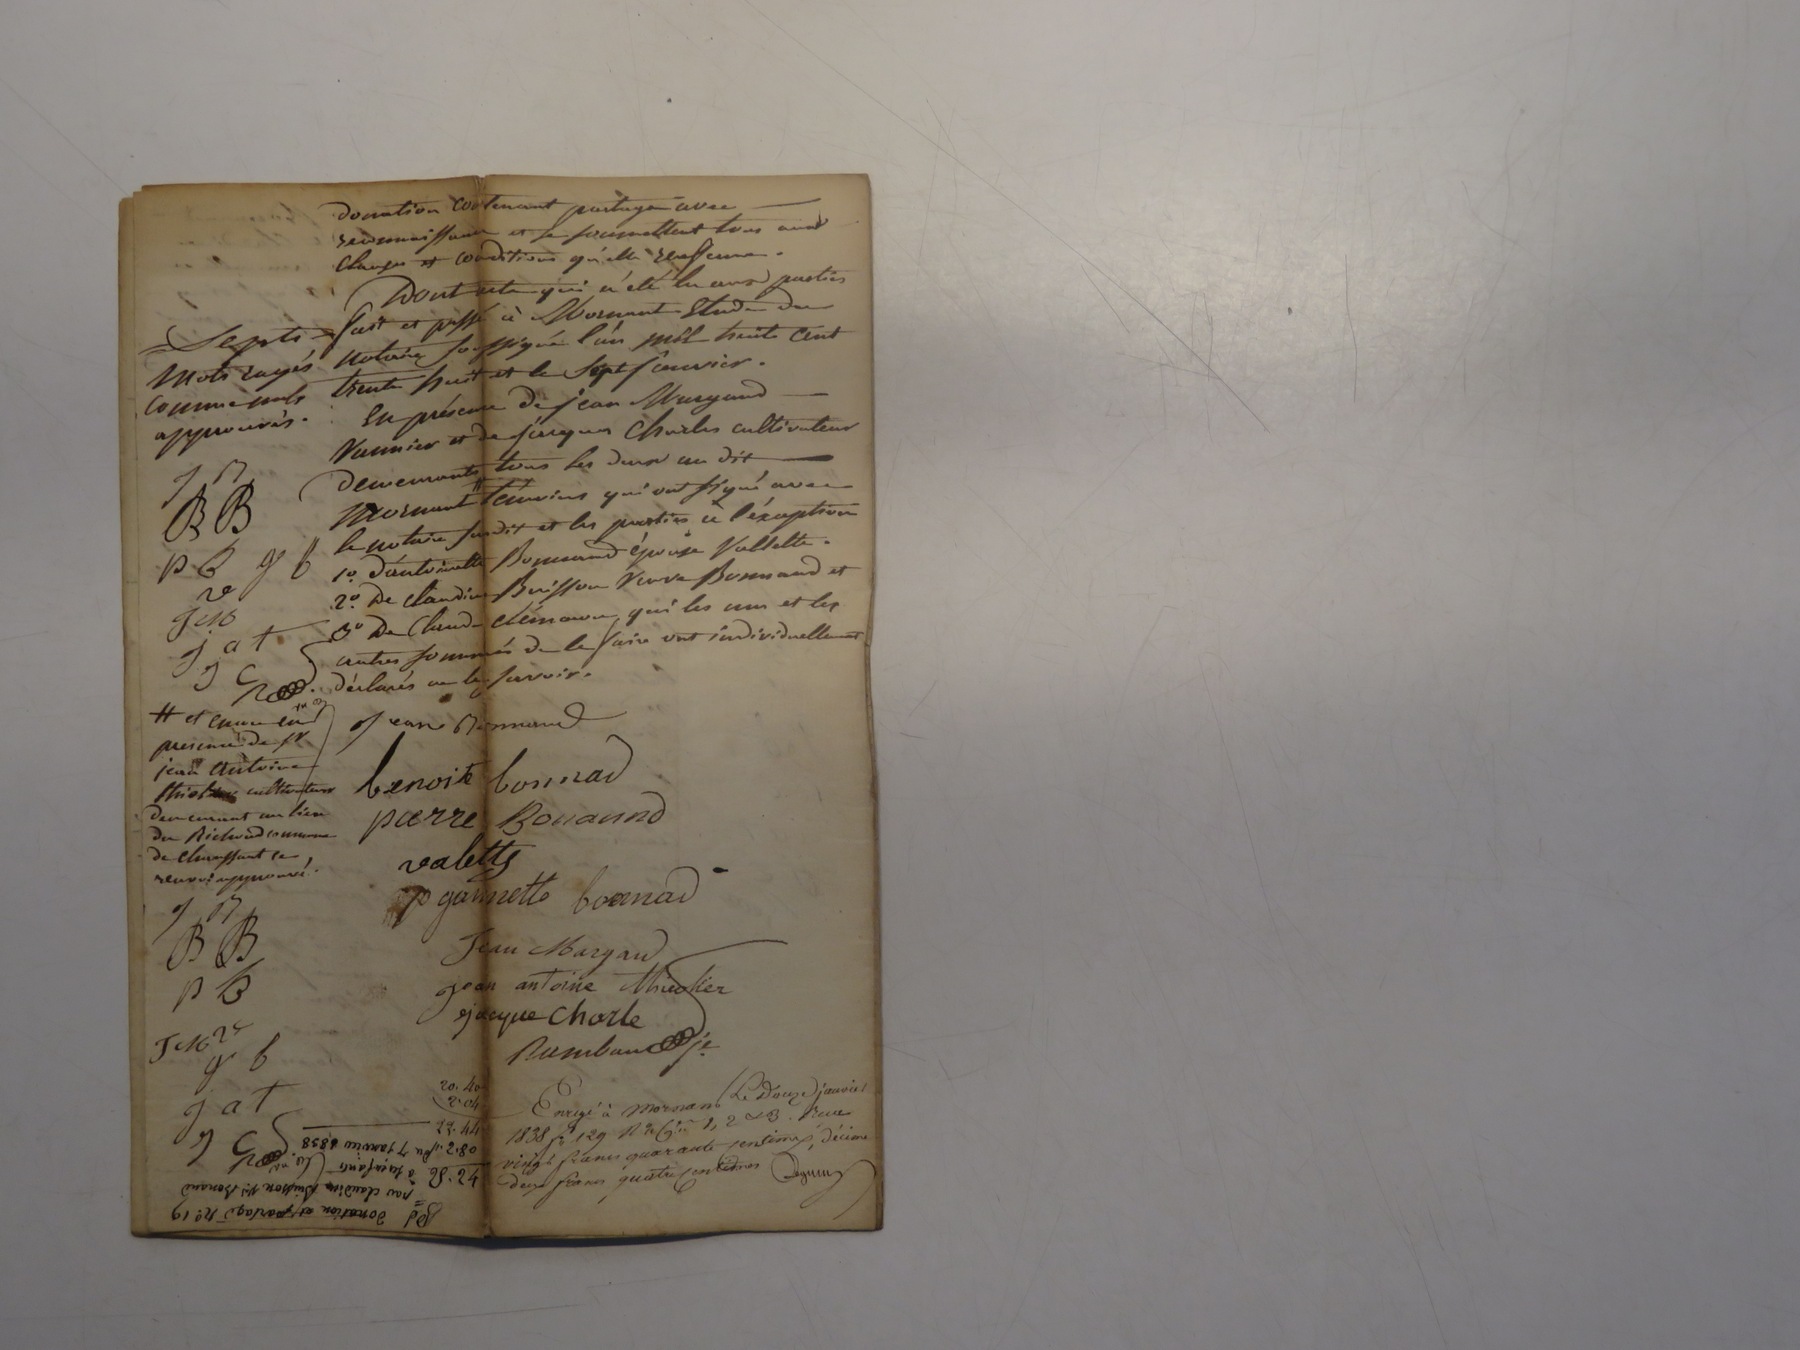 donation contenant partage avec
reconnaissance et se soumettent tous aux
charges et conditions qu'elle renferme.
Dont acte qui a été lu aux parties
fait et passé à Mornant Etude du
notaire soussigné l'an mil huit cent
trente huit et le sept janvier.
En présence de jean Margand
Vannier et de jacques Charles cultivateur
demeurants tous les deux au dit
Mornant # témoins qui ont signé avec
le notaire susdit et les parties à l'éxception
1o. d'antoinette Bonnand épouse Vallette.
2o. De claudine Buisson Veuve Bonnand et
3o De Claude clémaron, qui les uns et les
autres sommés de le faire ont individuellement
déclarés ne le savoir.
Septs
Mots rayés
comme nuls
approuvés.
j B
B B
p B g b
v
J M
j a t
J C
# et encore en
présence de Sr
jean antoine
cultivateur
demeurant au lieu
du Richoud commune
de chaussant ce
renvoi approuvé.
j B
B B
p B
J M v
g b
j a t
J C
jean Bonnand
benoit bonnad
pierre Bonannd
valette
gannette bonnad
Jean Margand
jean antoine Thiollier
jacque Charle
Rambaud
20.40
2.04
22.44
Enregé à Mornant Le Douze janvier
1838 fo 129 Ro Ces 1, 2 & 3. Reçu
vingt francs quarante centimes, décime
deux francs quatre centimes
Donation et partage No. 19
par claudine Buisson Ve Bonand
à ses enfants
du 7 janvier 1838